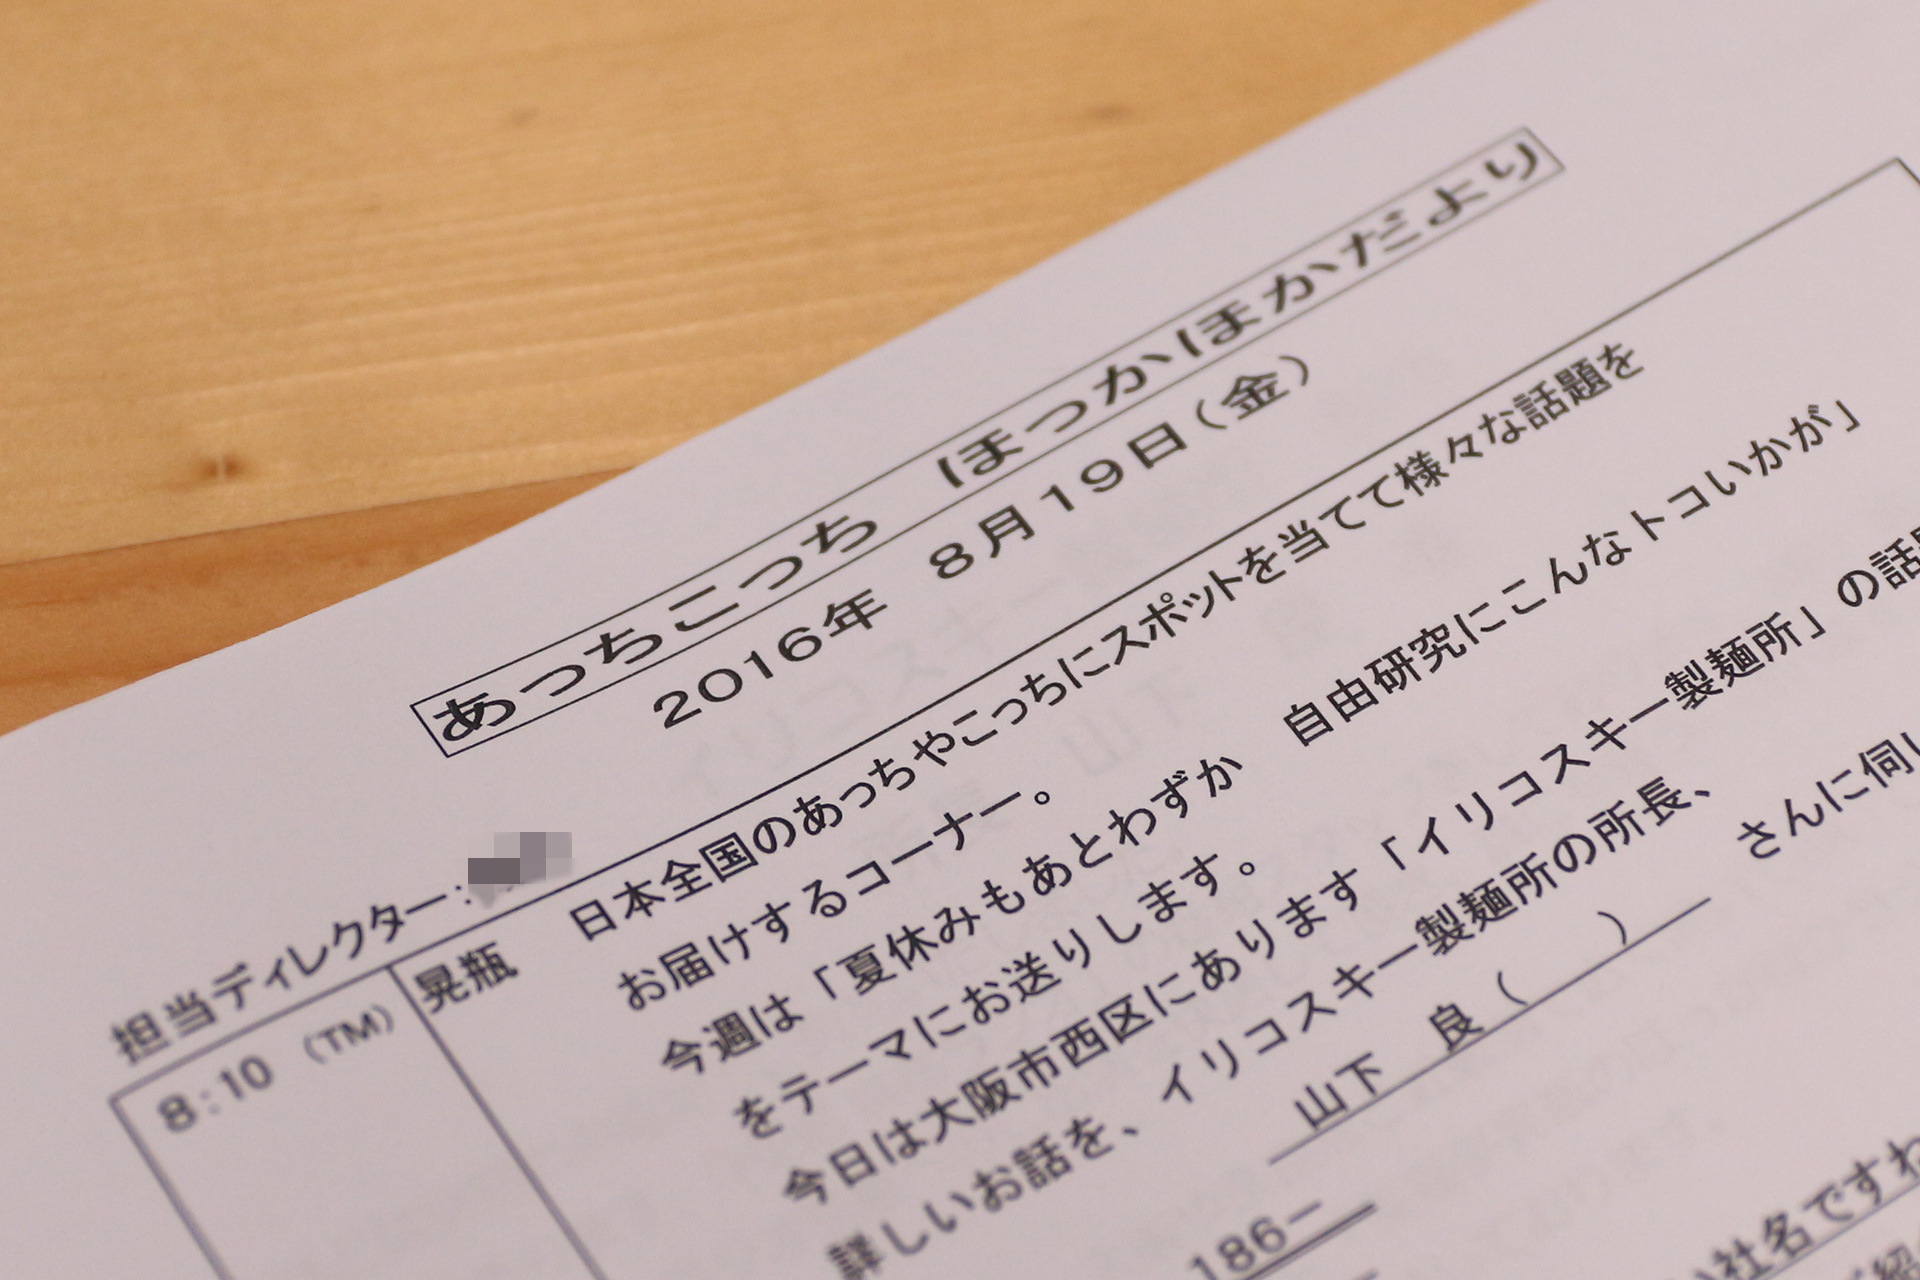 あっちこっち　ほっかほまかだより
2016年　8月19日（金）
担当ディレクター：
8：10　（TM）
晃瓶　日本全国のあっちやこっちにスポットを当てて様々な話題を
お届けするコーナー。
今週は「夏休みもあとわずか　自由研究にこんなトコいかが」
をテーマにお送りします。
今日は大阪市西区にあります「イリコスキー製麺所」の話
詳しいお話を、イリコスキー製麺所の所長、
山下　良（　　　）　さんに伺い
186－
社名ですわ